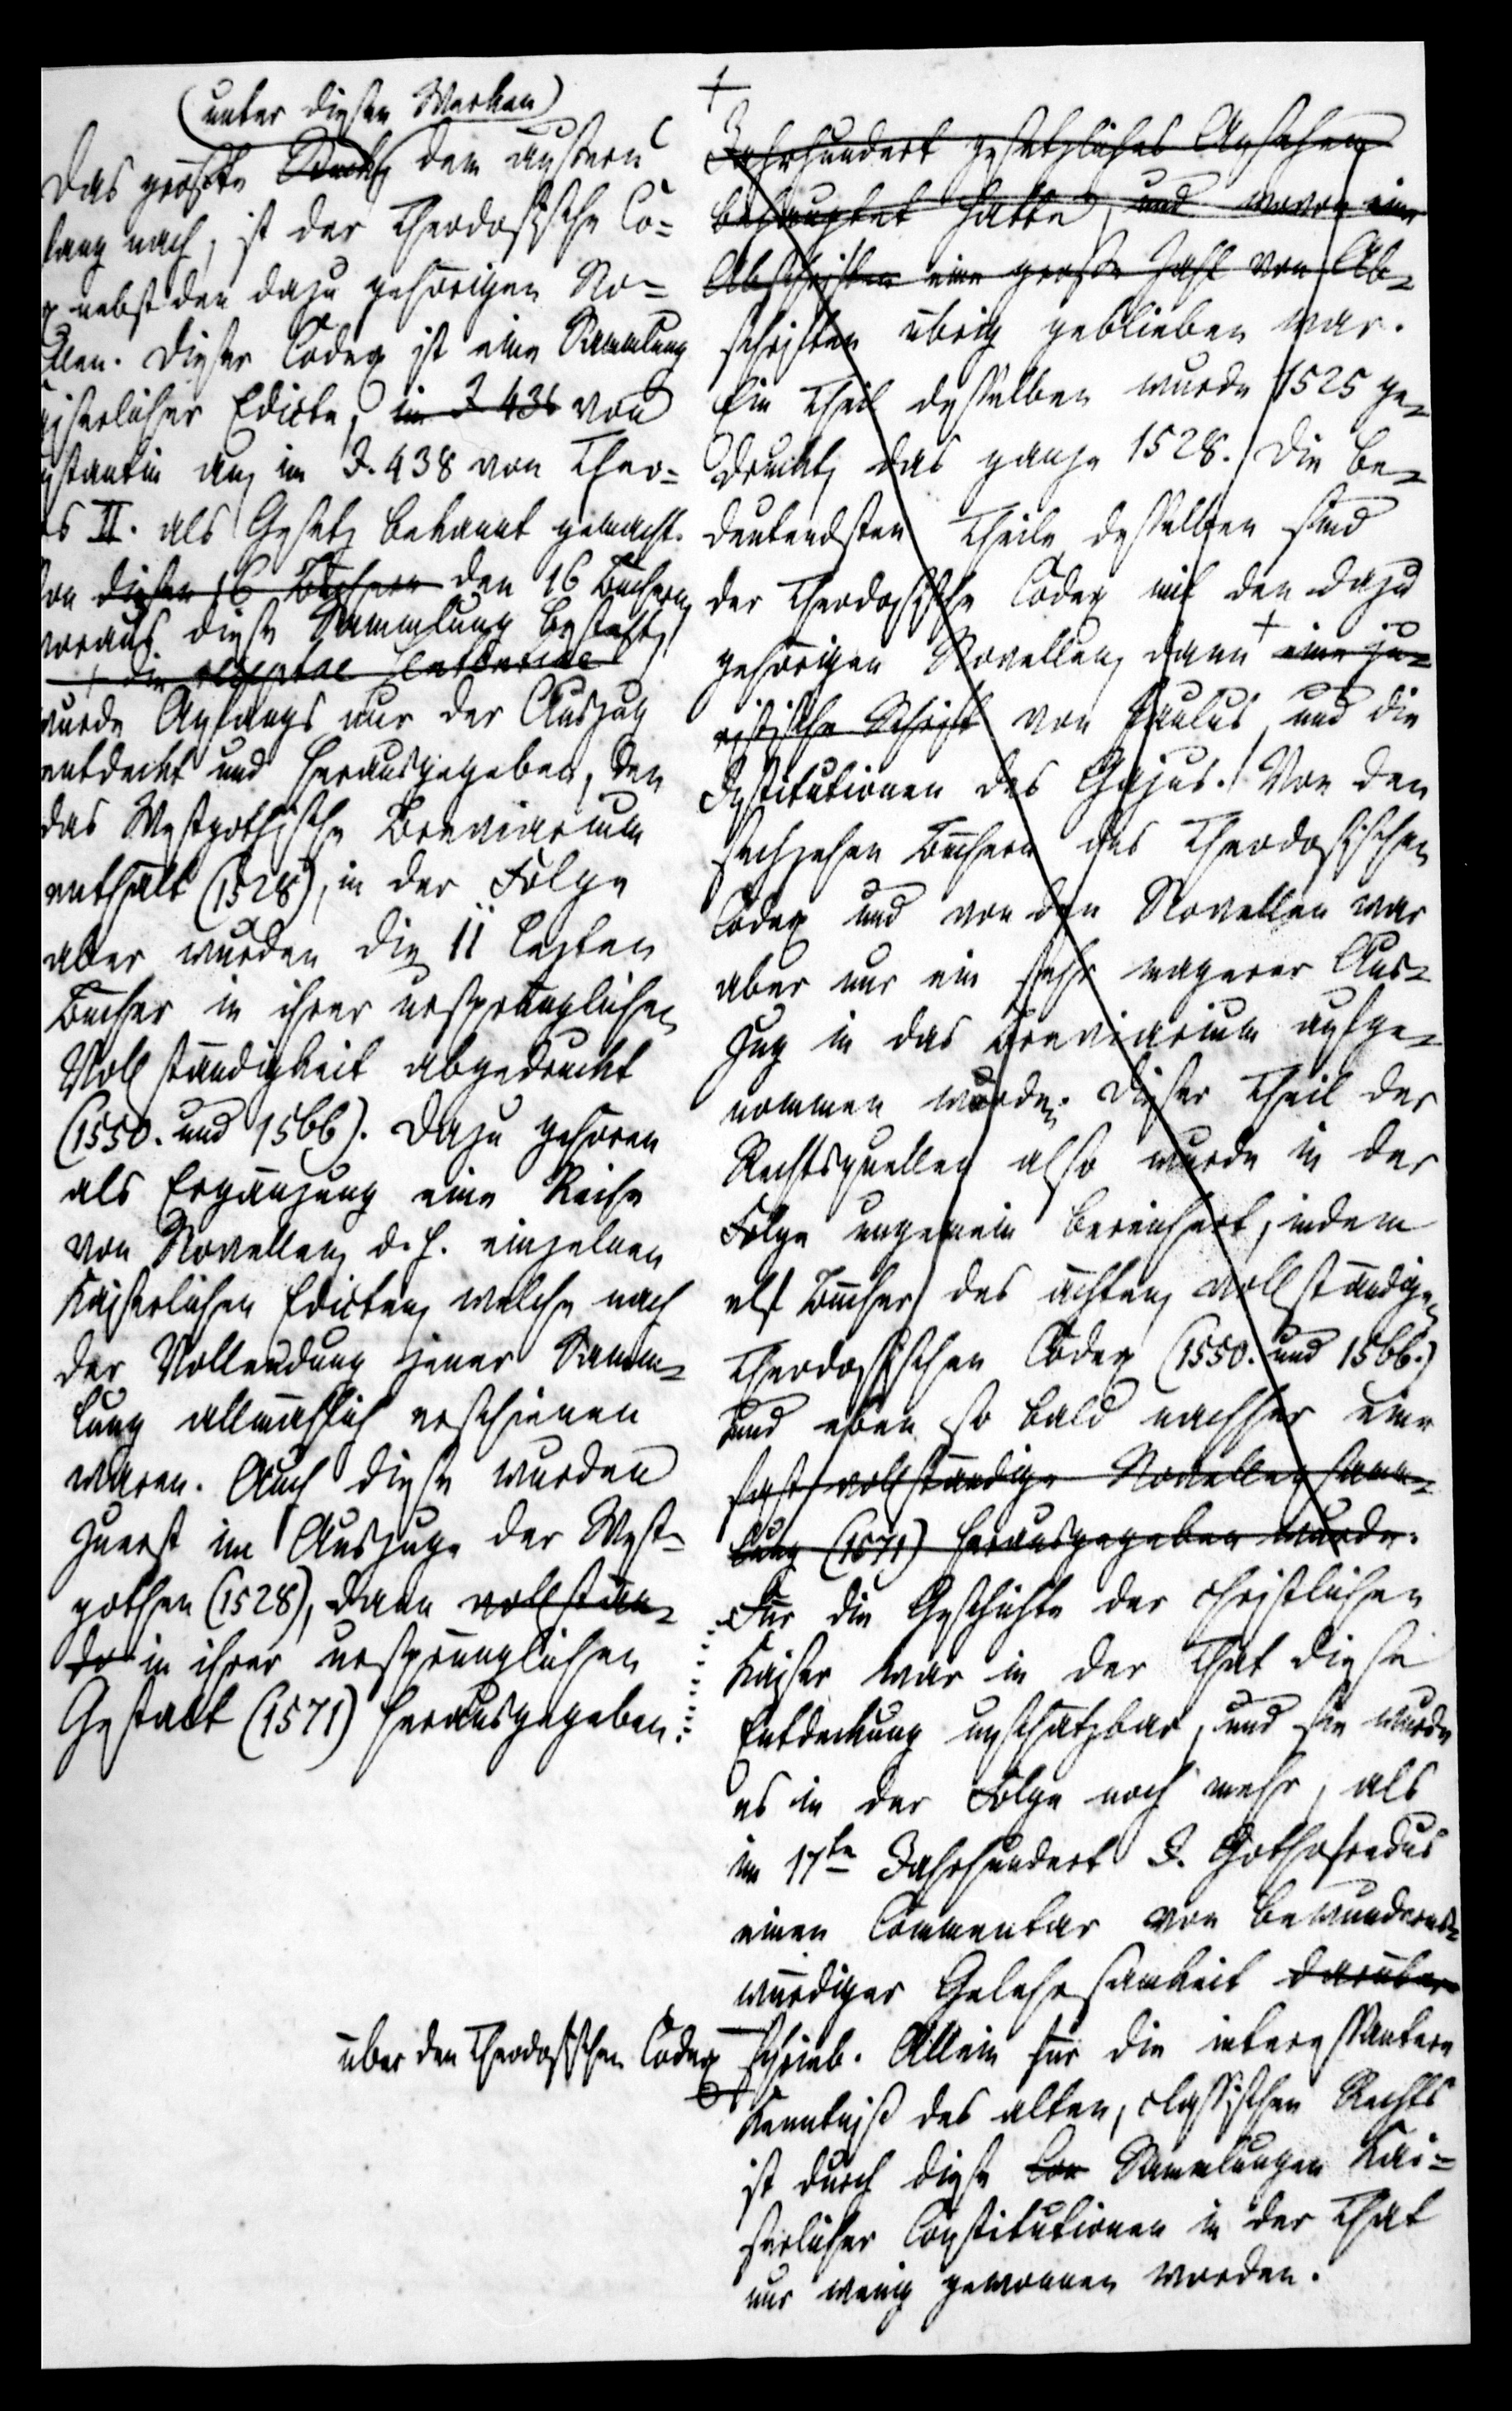 (unter diesen Werken)
Das größte Werk, dem äußern
fang nach, ist der Theodosische Co=
x nebst den dazu gehörigen No=
llen. Dieser Codex ist eine Sammlung
iserlicher Edicte, im J 436 von
nstantin an, im J. 438 von Theo=
s II. als Gesetz bekannt gemacht.
on diesen 16 Büchern den 16 Büchern,
woraus diese Sammlung besteht,
die receptae sententiae
wurde Anfangs nur der Auszug
entdeckt und herausgegeben, den
das Westgothische Breviarium
enthält (1528), in der Folge
aber wurden die 11 lezten
Bücher in ihrer ursprünglichen
Vollständigkeit abgedruckt
(1550. und 1566). Dazu gehören
als Ergänzung eine Reihe
von Novellen, d. h. einzelnen
Kaiserlichen Edicten, welche nach
der Vollendung jener Samm=
lung allmählich erschienen
waren. Auch diese wurden
zuerst im Auszuge der West=
gothen (1528), dann vollstän=
di in ihrer ursprünglichen
Gestalt (1571) herausgegeben.
+
Jahrhundert gesetzliches Ansehen
behauptet hatte, und wovon eine
Abschriften eine große Zahl von Ab=
schriften übrig geblieben war.
Ein Theil desselben wurde 1525 ge=
druckt, das ganze 1528. Die be=
deutendsten Theile desselben sind
der Theodosische Codex mit den dazu
gehörigen Novellen, dann + eine ju=
ristische Schrift von Paulus, und die
Institutionen des Gajus. Von den
sechzehen Büchern des Theodosischen
Codex und von den Novellen war
aber nur ein sehr magerer Aus=
zug in das Breviarium aufge=
nommen worden. Dieser Theil der
Rechtsquellen also wurde in der
Folge ungemein bereichert, indem
elf Bücher des ächten, vollständigen
Theodosischen Codex (1550. und 1566.)
und eben so bald nachher eine
fast vollständige Novellensamm=
lung (1571) herausgegeben wurde.
Für die Geschichte der christlichen
Kaiser war in der That diese
Entdeckung unschätzbar, und sie wurde
es in der Folge noch mehr, als
im 17ten Jahrhundert J. Gothofredus
einen Commentar von bewunderns=
würdiger Gelehrsamkeit darüber
über den Theodosischen Codex schrieb. Allein für die interessantere
Kenntniß des alten, classischen Rechts
ist durch diese Con Sammlungen Kai=
serlicher Constitutionen in der That
nur wenig gewonnen worden.